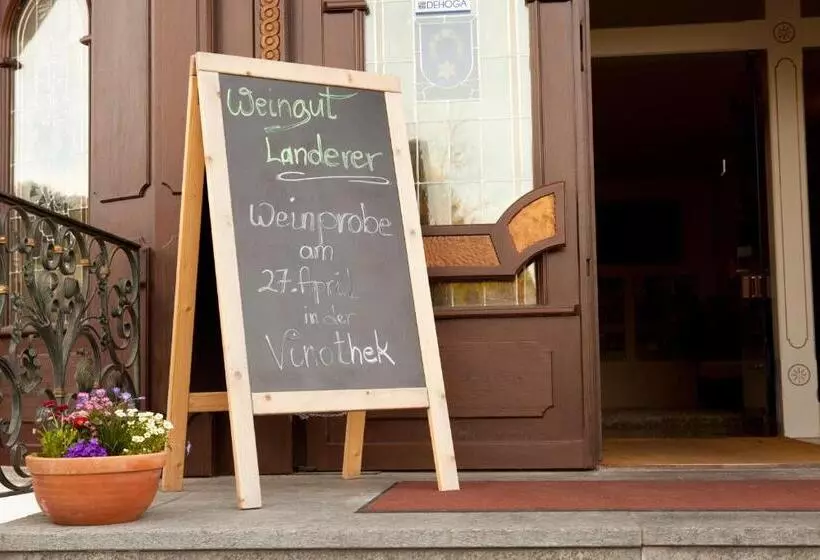 DEHOGA
Weingut
Landerer
Weinprobe
am
27. April
in der
Vinothek